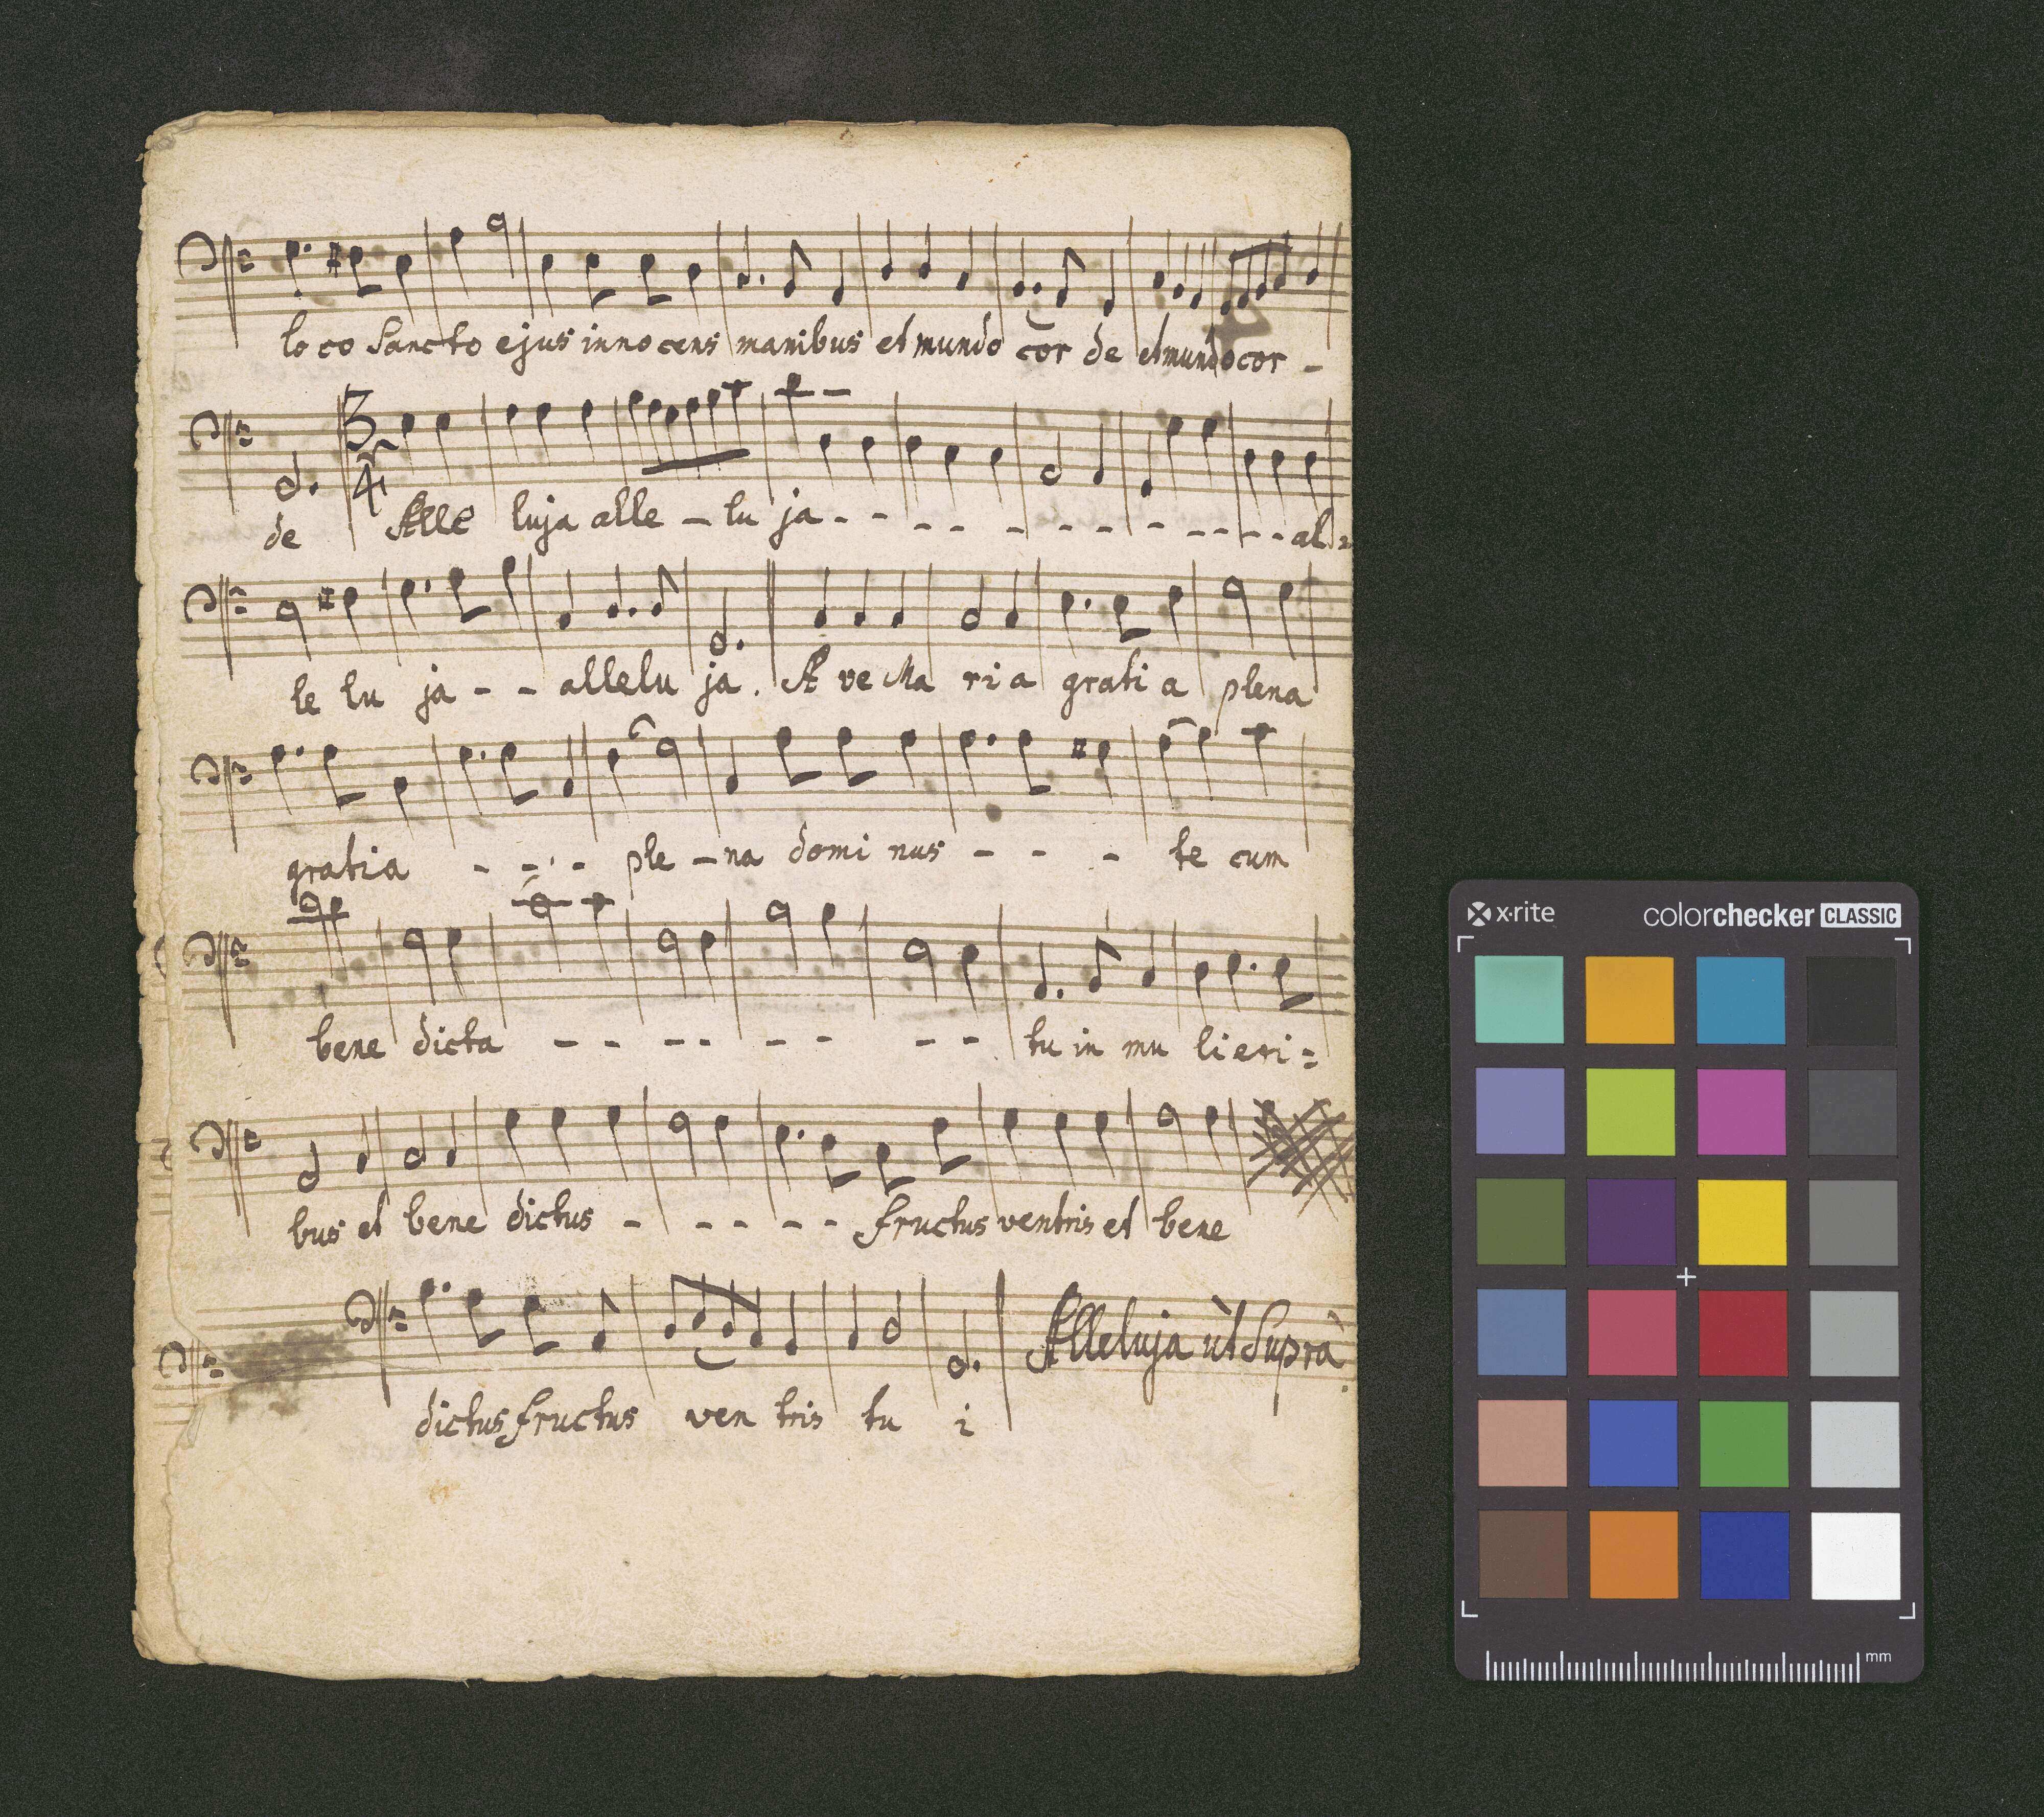 lo co Sancto ejus innocens manibus et mundo cor de et mundo cor -
3
4
de Alle luja alle - lu ja - - - - - - - - - - - - al =
le lu ja - - allelu ja. A ve Ma ri a grati a plena
gratia - - - - ple - na domi nus - - - te cum
bene dicta - - - - - - - - tu in mu li eri =
bus et bene dictus - - - - - - fructus ventris et bene
Alleluja ùt Suprà
dictus fructus ven tris tu i
x·rite colorchecker CLASSIC
mm